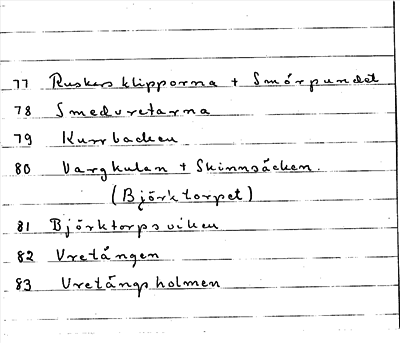 77 Ruskers klipporna + Smörpundet
78 Smedvretarna
79 Kurrbacken
80 Vargkulan + Skinnsäcken.
(Björktorpet)
81 Björktorpsviken
82 Vretängen
83 Vretängsholmen